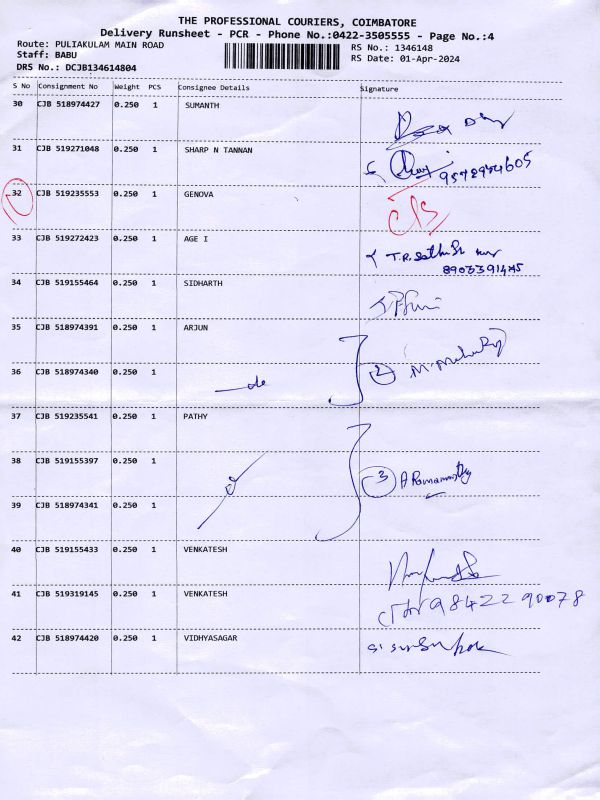 THE PROFESSIONAL COURIERS, COIMBATORE
Delivery Runsheet - PCR - Phone No.:0422-3505555 - Page No.:4
Route: PULIAKULAM MAIN ROAD RS No.: 1346148
Staff: BABU RS Date: 01-Apr-2024
DRS No.: DCJB134614804
S No Consignment No Weight PCS Consignee Details Signature
30 CJB 518974427 0.250 1 SUMANTH
31 CJB 519271048 0.250 1 SHARP N TANNAN
32 CJB 519235553 0.250 1 GENOVA
33 CJB 519272423 0.250 1 AGE I
34 CJB 519155464 0.250 1 SIDHARTH
35 CJB 518974391 0.250 1 ARJUN
36 CJB 518974340 0.250 1 do 2
37 CJB 519235541 0.250 1 PATHY
38 CJB 519155397 0.250 1 3
39 CJB 518974341 0.250 1
40 CJB 519155433 0.250 1 VENKATESH
41 CJB 519319145 0.250 1 VENKATESH 9842290078
42 CJB 518974420 0.250 1 VIDHYASAGAR